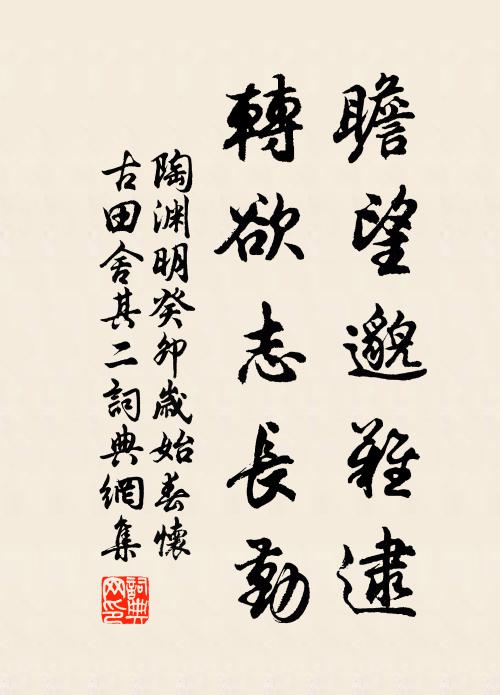 瞻望邈難逮
轉欲志長勤
陶渊明癸卯歲始春懷
古田舍其二詞典網集
詞典
网印